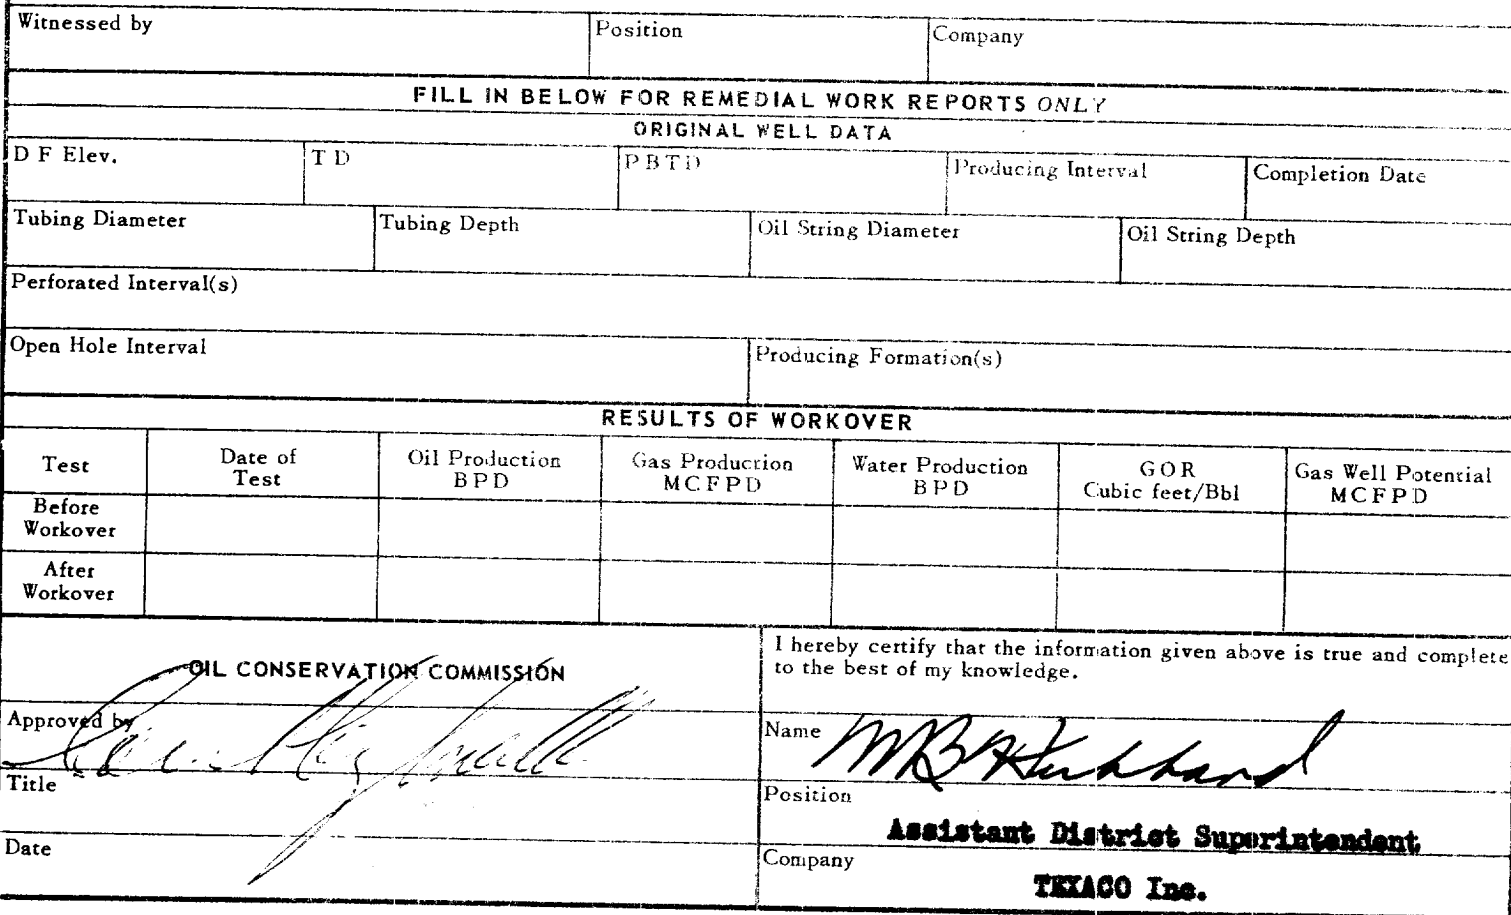 Witnessed by Position Company
FILL IN BELOW FOR REMEDIAL WORK REPORTS ONLY
ORIGINAL WELL DATA
D F Elev. T D P B T D Producing Interval Completion Date
Tubing Diameter Tubing Depth Oil String Diameter Oil String Depth
Perforated Interval(s)
Open Hole Interval Producing Formation(s)
RESULTS OF WORKOVER
Test Date of Test Oil Production BPD Gas Production MCFPD Water Production BPD GOR Cubic feet/Bbl Gas Well Potential MCFPD
Before Workover
After Workover
OIL CONSERVATION COMMISSION
I hereby certify that the information given above is true and complete
to the best of my knowledge.
Approved by
Name M B Hubbard
Title
Position
Assistant District Superintendent
Date
Company
TEXACO Inc.